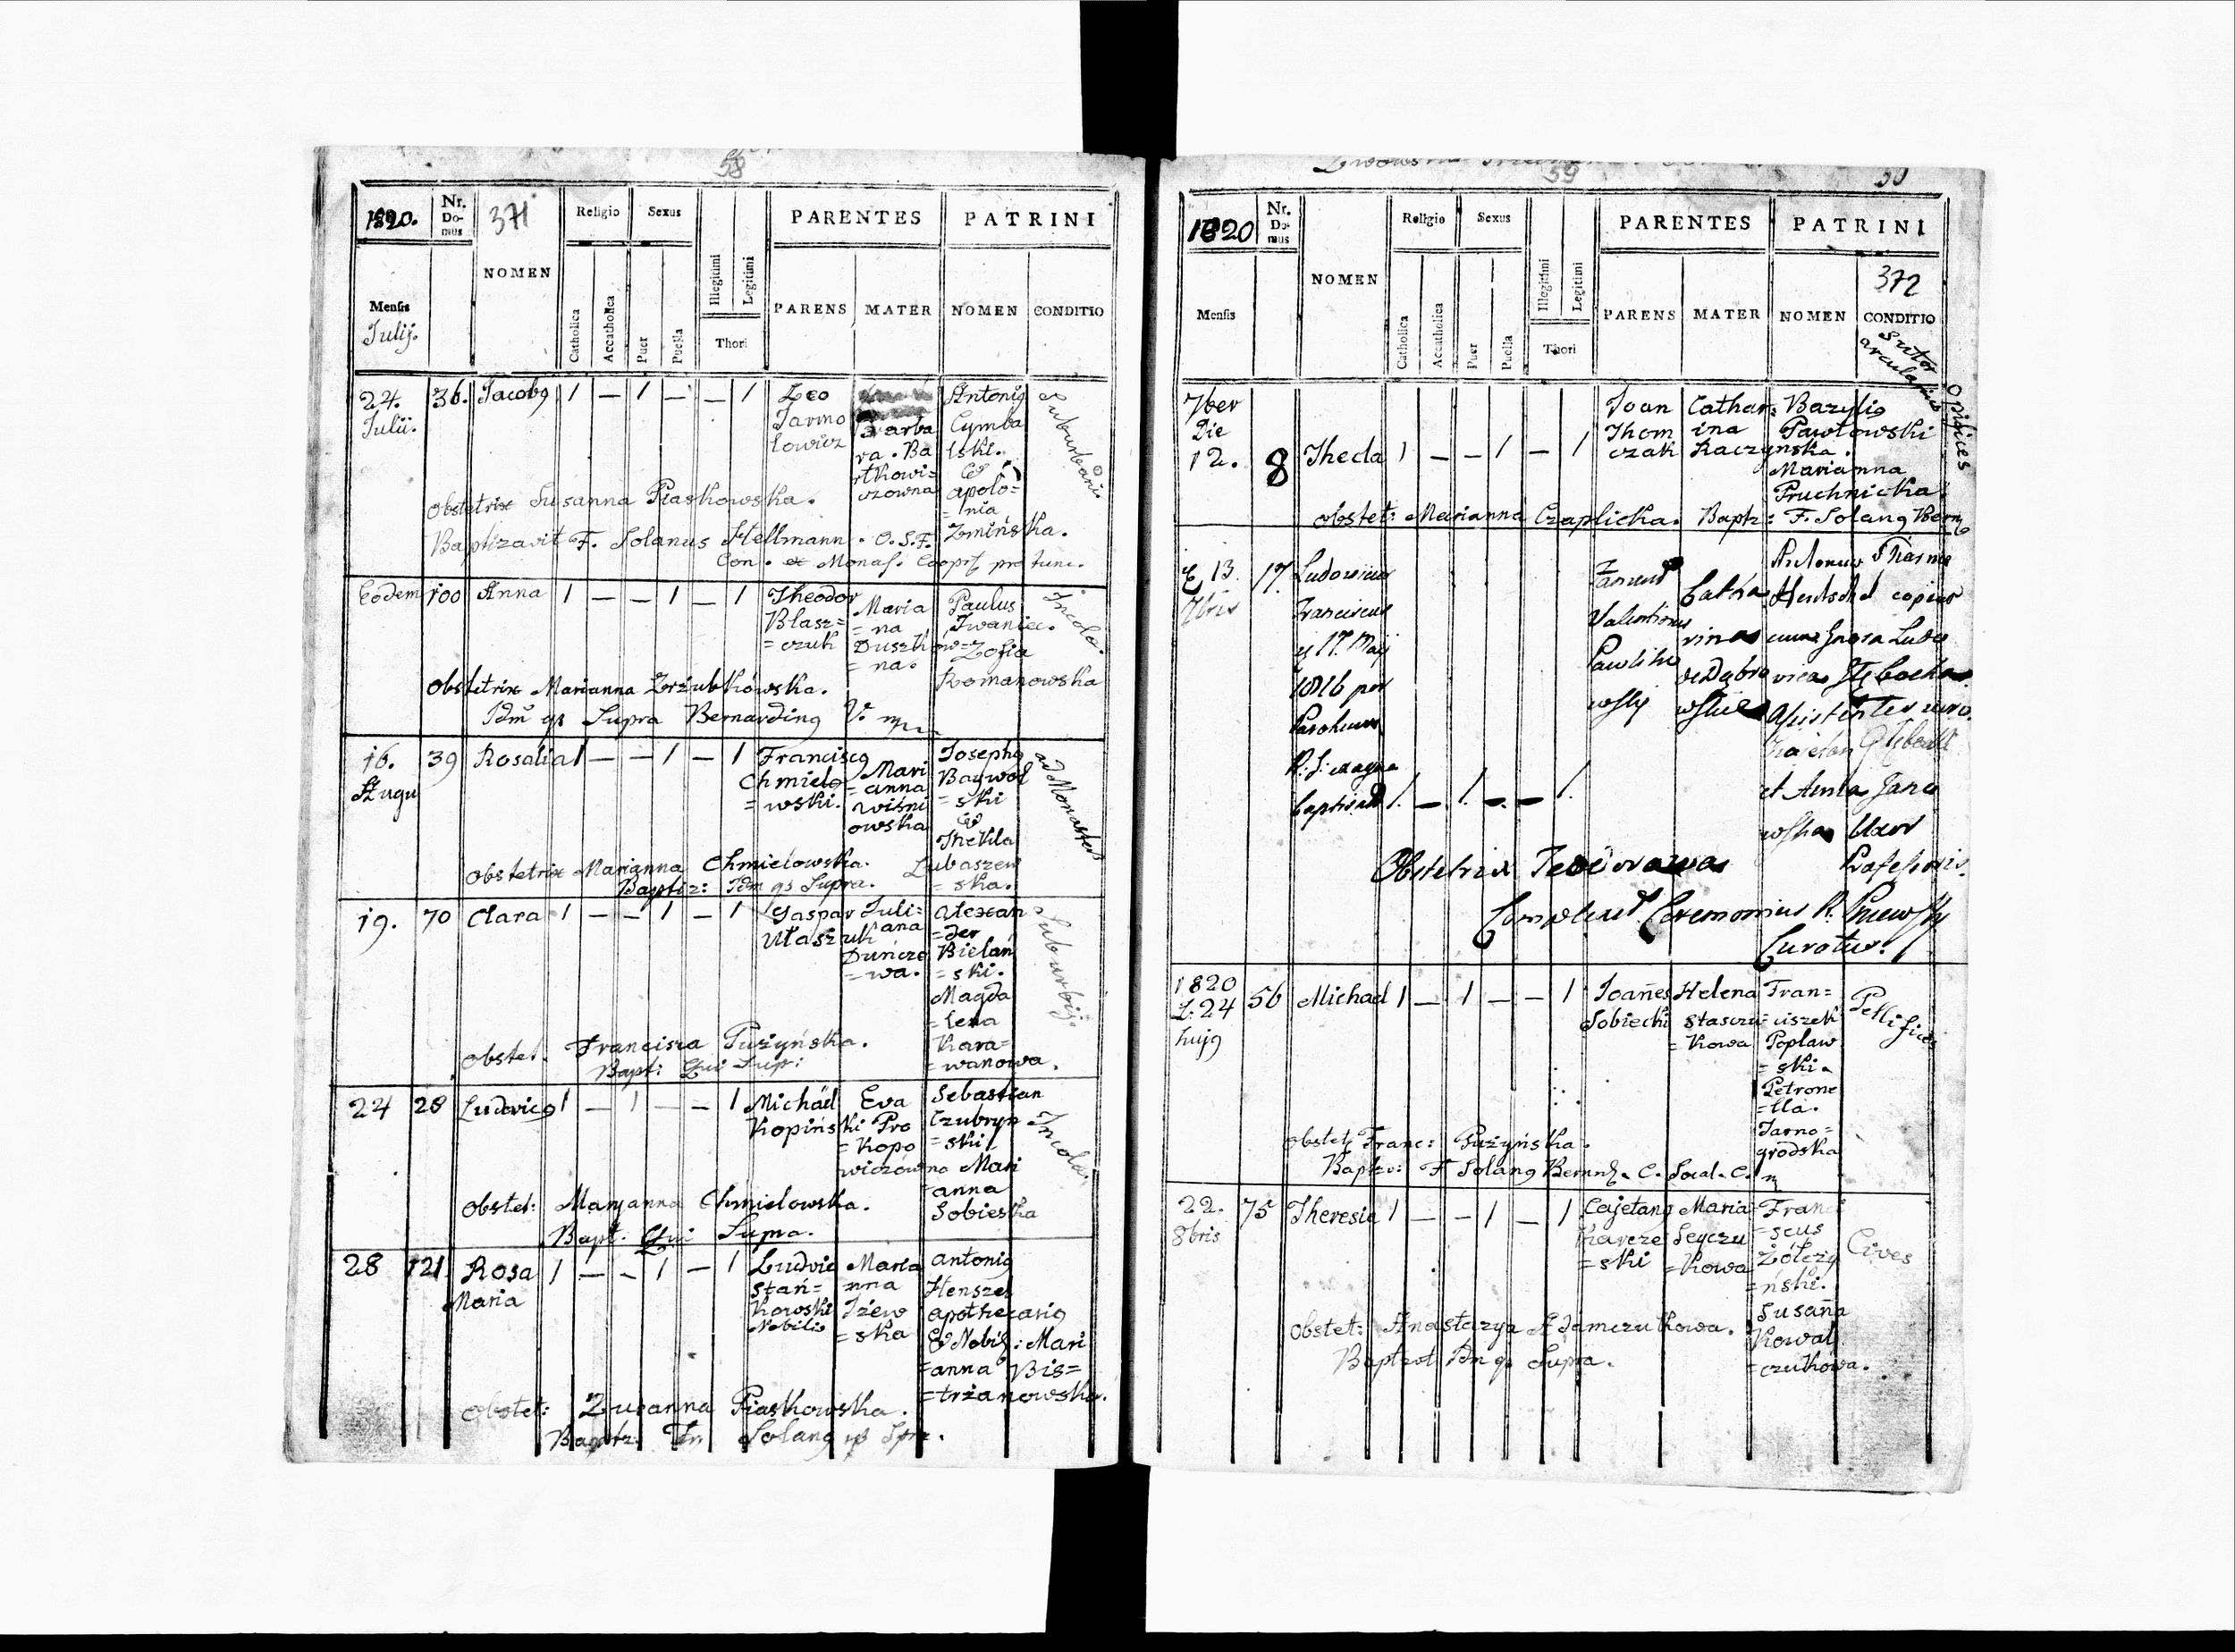 58
1820.
Nr. Domus
371
NOMEN
Religio
Sexus
Catholica
Accatholica
Puer
Puella
Illegitimi
Legitimi
Thori
PARENTES
PATRINI
PARENS
MATER
NOMEN
CONDITIO
Mensis
Julij.
24. Julii.
36.
Jacob9
1 — 1 — — 1
Leo
Jarmo
lowicz
Barba
ra. Ba
rtkowi=
czowna
Antoni9
Cymba
lski.
&
Apolo=
=nia
Zmińska.
Suburbani.
Obstetrix Susanna Piaskowska.
Baptizavit F. Solanus Hellmann. O.S.F.
Con. et Monas. Coopr pro tunc.
Eodem
100
Anna
1 — — 1 — 1
Theodor
Blasz=
=czuk
Maria
=na
Duszk
=na.
Paulus
Iwaniec.
Zofia
Romanowska
Incolae.
Obstetrix Marianna Zrżubkowska.
Idm qs Supra Bernarding V. mp
16.
Augu
39
Rosalia
1 — — 1 — 1
Francisc9
Chmielo
=wski.
Mari
=anna
Wiśni
owska
Joseph9
Baywol
=ski
&
Thekla
Lubaszew
=ska.
ad Monaster
Obstetrix Marianna Chmielowska.
Baptiz: Idm qs Supra.
19.
70
Clara
1 — — 1 — 1
Gaspar
Ułaszuk
Juli=
ana
Duńcze
=wa.
Alexan
=der
Bielań
=ski.
Magda
=lena
Kara=
=wanowa.
Suburbij.
Obstet. Francisca Pużyńska.
Bapt: Qui Supr:
24
28
Ludovic9
1 — 1 — — 1
Michäel
Kopiński
Eva
Pro
=kopo
wiczówna
Sebastian
Czubryn
=ski
Mari
=anna
Sobieska
Incolae.
Obstet: Maryanna Chmielowska.
Bapt. Qui Supra.
28
121
Rosa
Maria
1 — — 1 — 1
Ludvic
Stań=
kowski
Nobilis
Maria
=nna
Iżew
=ska
Antoni9
Henszel
apothecari9
& Nobil: Mari
=anna Bis=
=trżanowska.
Obstet: Zuzanna Piaskowska.
Baptz: Fr. Solan9 ut Spr.
59
50
1820
Nr. Domus
NOMEN
Religio
Sexus
Catholica
Accatholica
Puer
Puella
Illegitimi
Legitimi
Thori
PARENTES
PATRINI
372
PARENS
MATER
NOMEN
CONDITIO
Mensis
Sutor
arcularius
Opifices
7ber
Die
12.
8
Thecla
1 — — 1 — 1
Joan
Thom
czak
Cathar:
ina
Raczynska.
Bazyli9
Pawłowski
Marianna
Pruchnicka.
Obstet: Marianna Czaplicka. Baptz: F. Solan9 Bern
13.
7bris
17.
Ludovicus
Franciscus
17. Maij
1816 per
Parohum
R. L. Magna
baptisat
1. — 1. — — 1.
Valentinus
Pawliko
wsky
Catha
rina
de Dąbro
wskie
Antonius
Hentschel
cum Gnosa Ludo
vica Głębocka
Assistentes vero
et Anna Jano
wska Uxor
Professoris.
Obstetrix Teodorowa
Complevit Ceremonias R. Pniewsky
Curatus.
1820
24
huj9
56
Michael
1 — 1 — — 1
Joañes
Sobiecki
Helena
Stasczu
=kowa
Fran=
ciszek
Popław
=ski.
Petrone
=lla.
Jarno=
grodska
Pellifices
Obstet Franc: Pużyńska.
Baptz: F. Solan9 Bernrd. C. Local. C.
22.
8bris
75
Theresia
1 — — 1 — 1
Cajetan9
Karcze
=ski
Maria
Seyczu
=kowa
Fran
=scus
Żółczy
=ński.
Susaña
Kowal
=czukowa.
Cives
Obstet: Anastazya Adamczukowa.
Baptzvt Idm qs Supra.